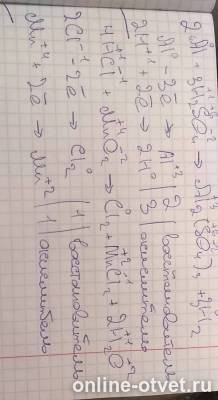 2Al + 3H₂SO₄ → Al₂(SO₄)₃ + 3H₂
Al⁰ - 3ē → Al⁺³ | 2 | восстановитель
2H⁺¹ + 2ē → 2H⁰ | 3 | окислитель
4H⁺¹Cl⁻¹ + Mn⁺⁴O₂⁻² → Cl₂⁰ + Mn⁺²Cl₂⁻¹ + 2H₂⁺¹O⁻²
2Cl⁻¹ - 2ē → Cl₂⁰ | 1 | восстановитель
Mn⁺⁴ + 2ē → Mn⁺² | 1 | окислитель
online-otvet.ru